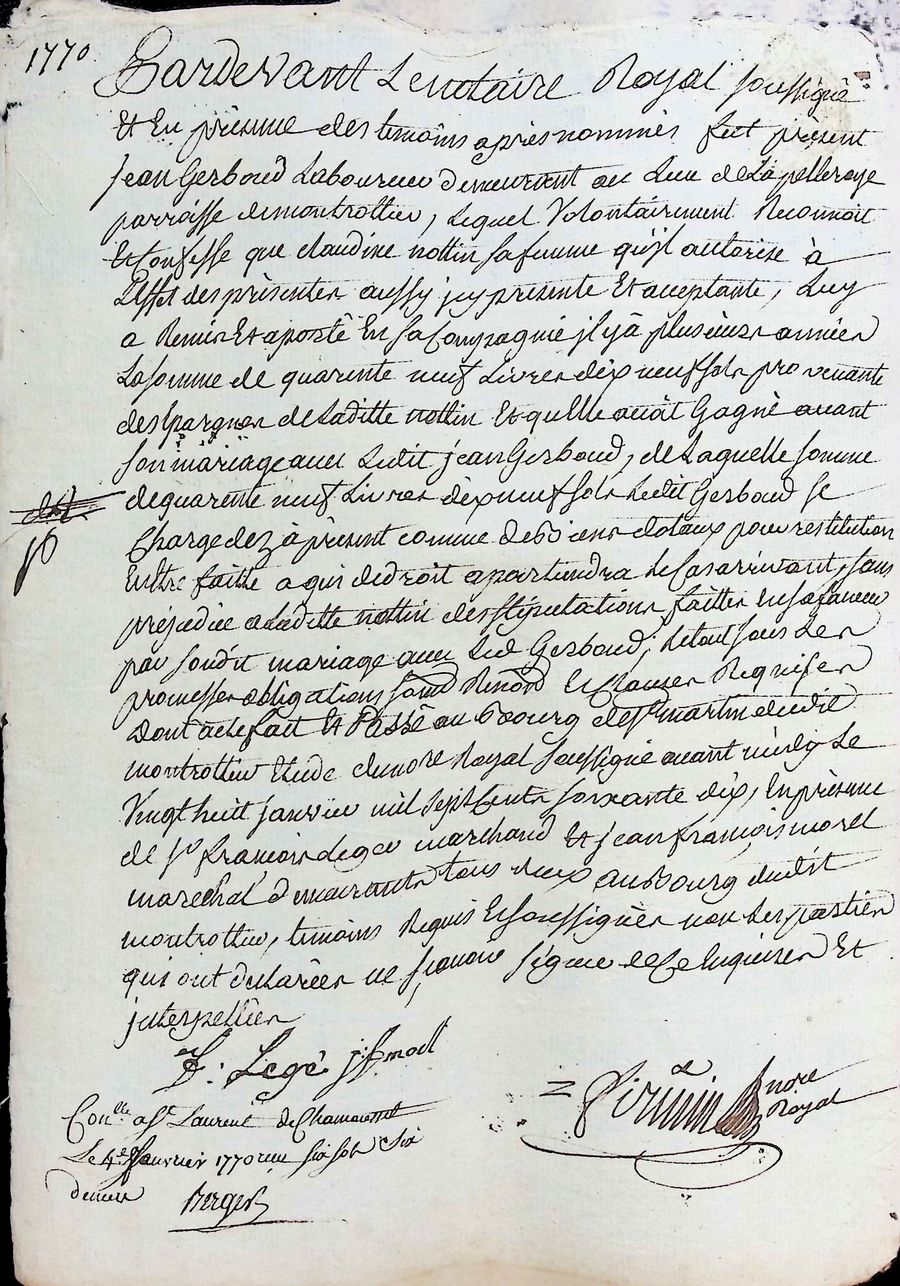 1770
Pardevant Le notaire Royal soussigné
Et En présence des temoins après nommés fut présent
jean Gerboud Laboureur demeurant au Lieu de Lapelleraye
parroisse de montrottier, Lequel Volontairement Reconnoit
Et Confesse que claudine nottin sa femme qu'jl autorise à
L'effet des présentes aussy jcy présente Et acceptante, Luy
a Remis Et aporté En sa Compagnie jl y à plusieurs années
La somme de quarente neuf Livres dix neuf sols provenante
des Epargnes de Laditte nottin Et qu'elle avoit Gagné avant
son mariage avec Ledit jean Gerboud, de Laquelle somme
de quarente neuf Livres dix neuf sols Ledit Gerboud se
Charge dez à présent comme de Biens dotaux pour restitution
En Etre faitte a qui de droit apartiendra Le Cas arrivant, sans
préjudice a Laditte nottin des stipulations faittes En sa faveur
par son dit mariage avec Led Gerboud; Le tout sous Les
promesses obligations Renond Et Clauses Requises
Dont acte fait Et Passé au Bourg de St martin dudit
montrottier Etude du nore Royal soussigné avant midy Le
Vingt huit janvier mil sept Cents soixante dix, En présence
de sr francois Legé marchand Et jean françois morel
marechal demeurants tous deux au Bourg dudit
montrottier, temoins Requis Et soussignés non Les parties
qui ont declarées ne sçavoir signer de Ce Enquises Et
jnterpellées
F: Legé j: f morel
Firmin nore
Royal
Conlle a St Laurent de Chamousset
Le 4e janvier 1770 reçu six sols six
deniers
Berger